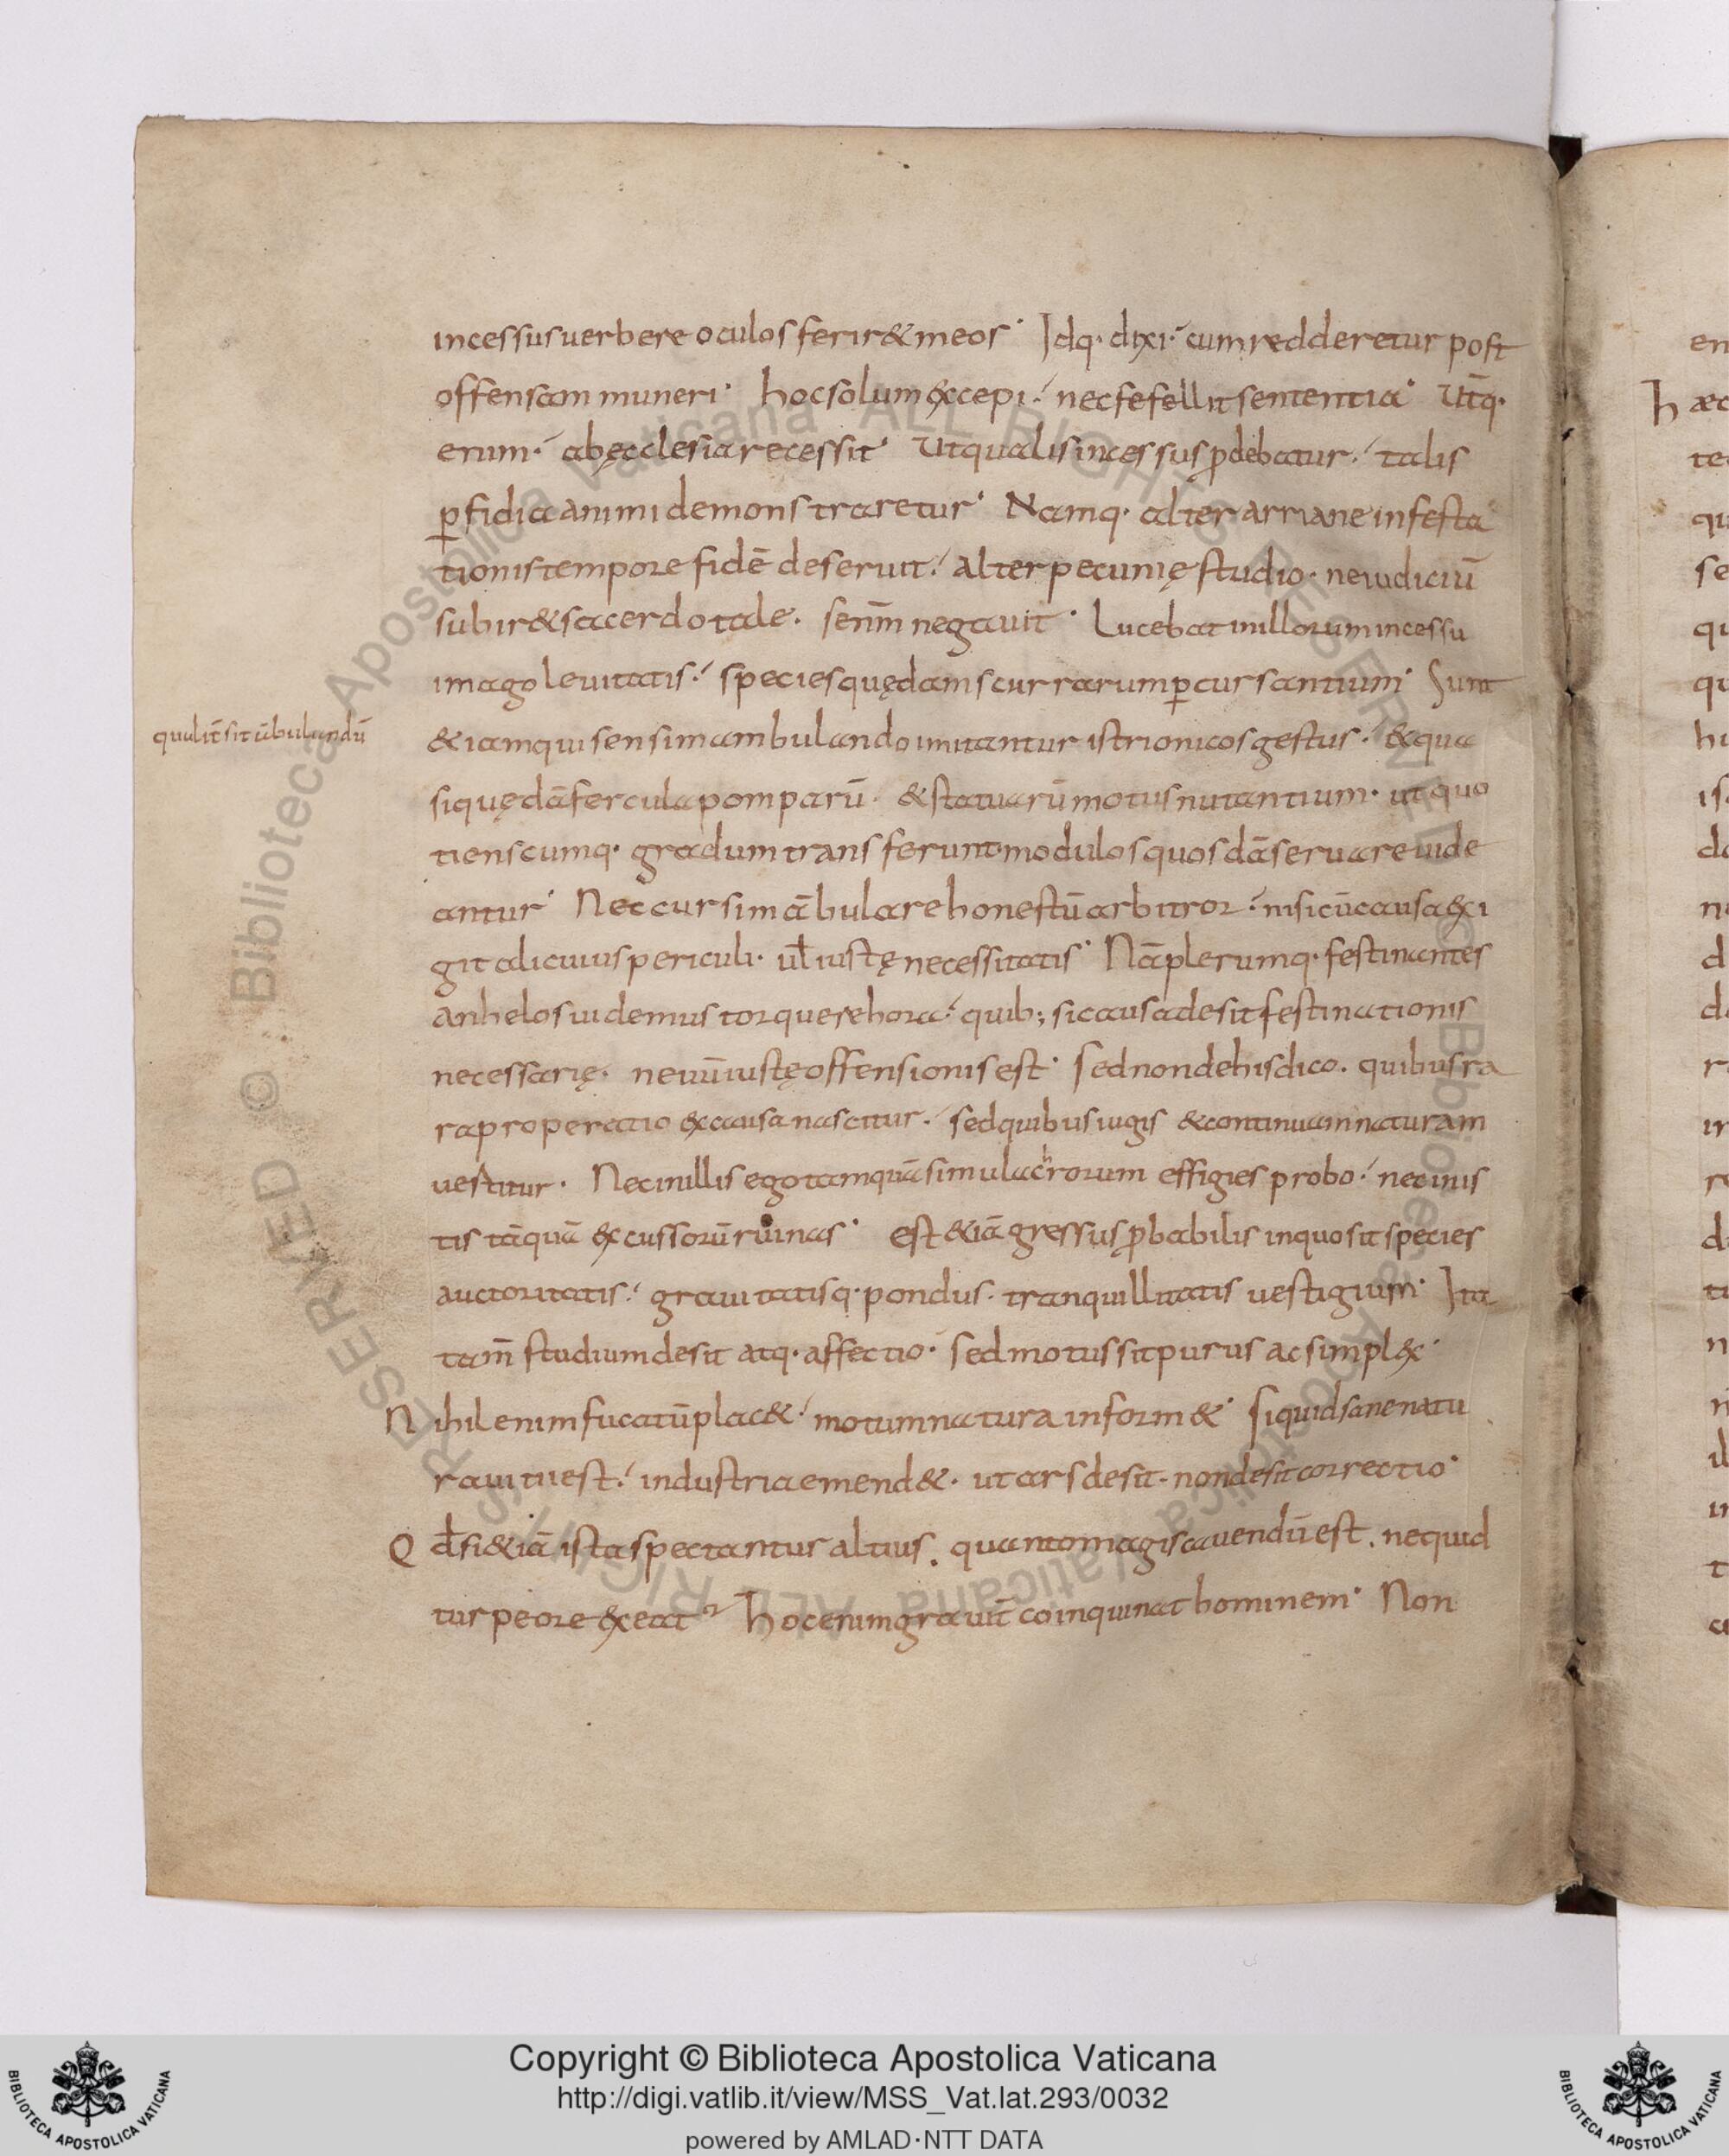 incessus uerbere oculos ferir& meos· Idq· dixi· cum redderetur post
offensam muneri· hoc solum excepi· nec fefellit sententia· Utq̄·
enim· ab ęcclesia recessit· Ut qualis incessus ꝓdebatur· talis
ꝑfidia animi demonstraretur· Namq· alter arriane infesta
tionis tempore fidē deseruit· alter pecunię studio· ne iudiciū
subir& sacerdotale· se nr̄m negauit· Lucebat in illorum incessu
imago leuitatis· species quędam scurrarum ꝑcursantium· Sunt
qualit̄ sit ābulandū
&iam qui sensim ambulando imitantur istrionicos gestus· & qua
si quędā fercula pomparū· & statuarū motus nutantium· ut quo
tienscumq· gradum transferunt modulos quosdā seruare uide
antur· Nec cursim ābulare honestū arbitror· nisi cū causa exi
git alicuius periculi· ul̄ iustę necessitatis· Nā plerumq· festinantes
anhelos uidemus torquere hora· quib; si causa desit festinationis
necessarię· neuū iustę offensionis est· Sed non de his dico· quibus ra
ra properatio ex causa nascitur· sed quibus iugis & continua in naturam
uestitur· Nec in illis ego tamquā simulachrorum effigies probo· nec in is
tis tāquā excussorū ruinas· est &iā gressus ꝓbabilis in quo sit species
auctoritatis· grauitatisq· pondus· tranquillitatis uestigium· Ita
tam̄ studium desit atq· affectio· sed motus sit purus ac simplex·
Nihil enim fucatū plac&· motum natura inform&· si quid sane natu
ra uitii est· industria emend&· ut ars desit· non desit correctio·
Qd̄ si &iā ista spectantur altius· quanto magis cauendū est· ne quid
turpe ore exeat· hoc enim grauit̄ coinquinat hominem· Non
en
hæc
te
qu
se
qu
qu
hi
is
da
no
d
d
r
in
r
d
t
n
n
il
in
t
Copyright © Biblioteca Apostolica Vaticana
http://digi.vatlib.it/view/MSS_Vat.lat.293/0032
powered by AMLAD·NTT DATA
BIBLIOTECA APOSTOLICA VATICANA
BIBLIOTECA APOSTOLICA VATICANA
© Biblioteca Apostolica Vaticana ALL RIGHTS RESERVED
© Biblioteca Apostolica Vaticana ALL RIGHTS RESERVED